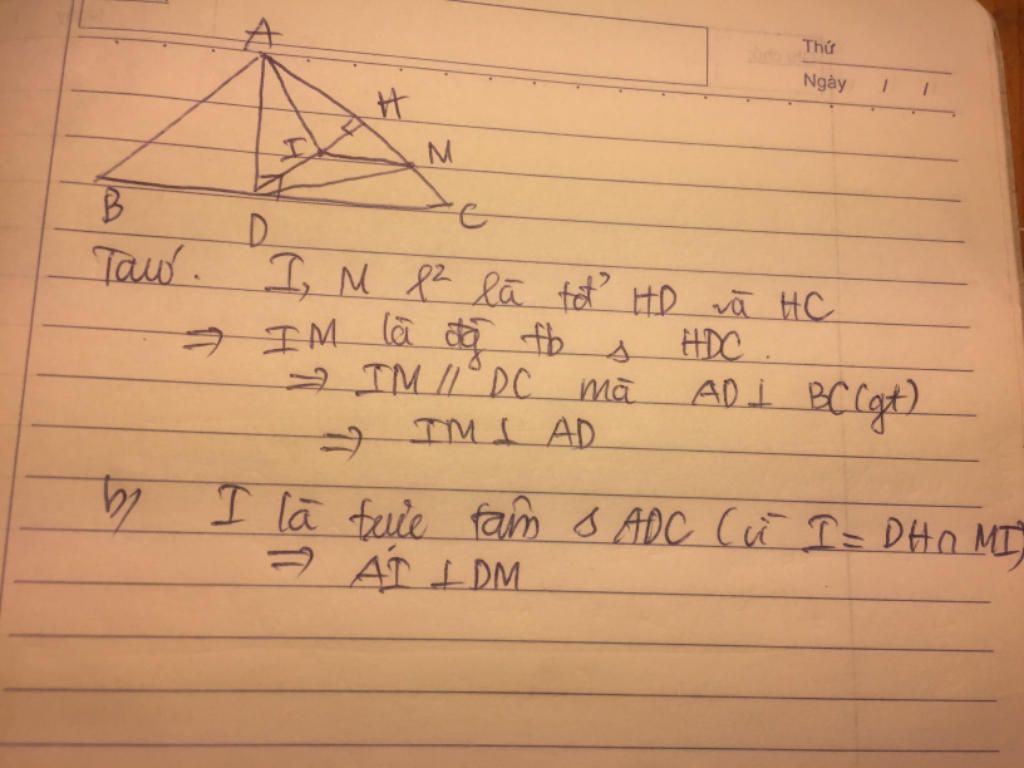 Thứ
Ngày / /
A
H
I
M
B
D
C
Ta có. I, M l² là tđ' HD và HC
⇒ IM là đg tb Δ HDC.
⇒ IM // DC mà AD ⊥ BC (gt)
⇒ IM ⊥ AD
b) I là trực tâm Δ ADC (vì I = DH ∩ MI)
⇒ AI ⊥ DM